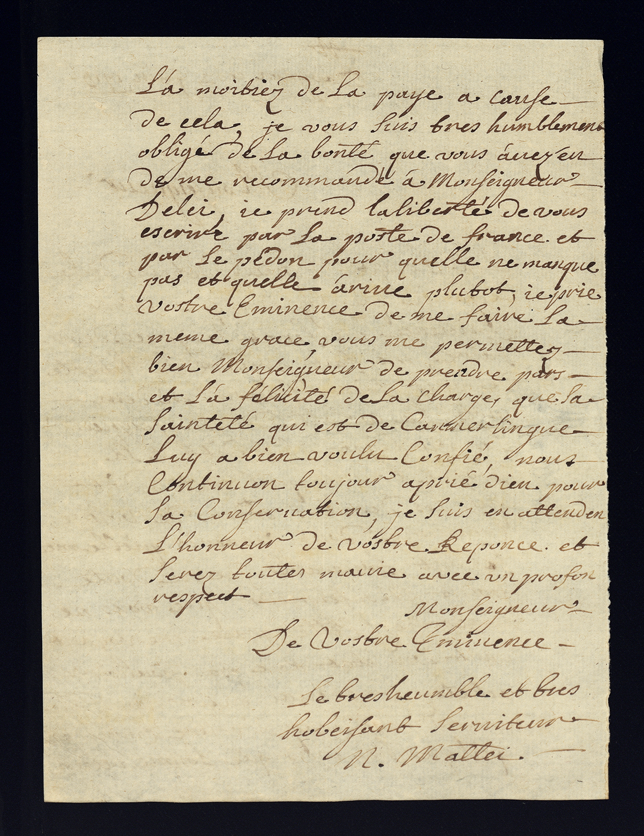 La moitiez de La paye a cause
de cela, je vous suis tres humblement
obligé de La bonté que vous ávez en
de me recommandé á Monseigneur
Delci, ie prend laliberté de vous
escrire par La poste de france et
par Le pédon pour quelle ne manque
pas et quelle árive plutot, ie prie
Vostre Eminence de me faire La
meme grace, vous me permettez
bien Monseigneur de prendre part
et Lá félicité de La charge, que sa
Sainteté qui est de Camerlingue
Luy a bien voulu Confié, nous
Continuon toujour aprié dieu pour
sa Conseruation, je suis en attenden
L'honneur de vostre Reponce. et
Serez toutes mauie avec un profon
respect
Monseigneur
De Vostre Eminence
Le tres heumble et tres
hobeisant Seruiteur
N. Mattei.